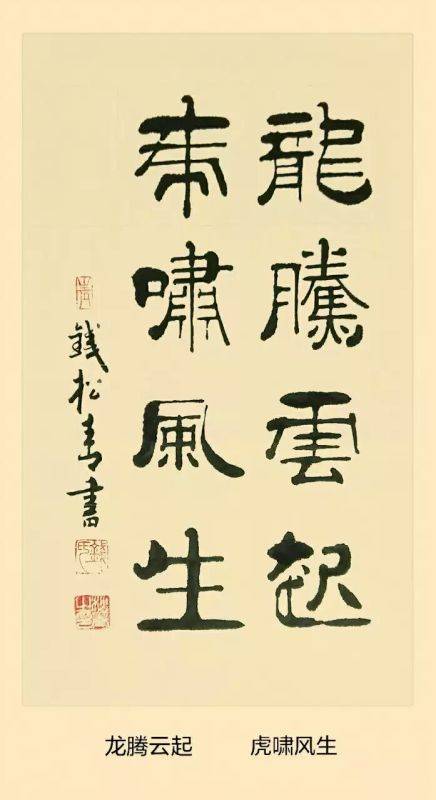 龍騰雲起
虎嘯風生
錢松青書
龙腾云起 虎啸风生